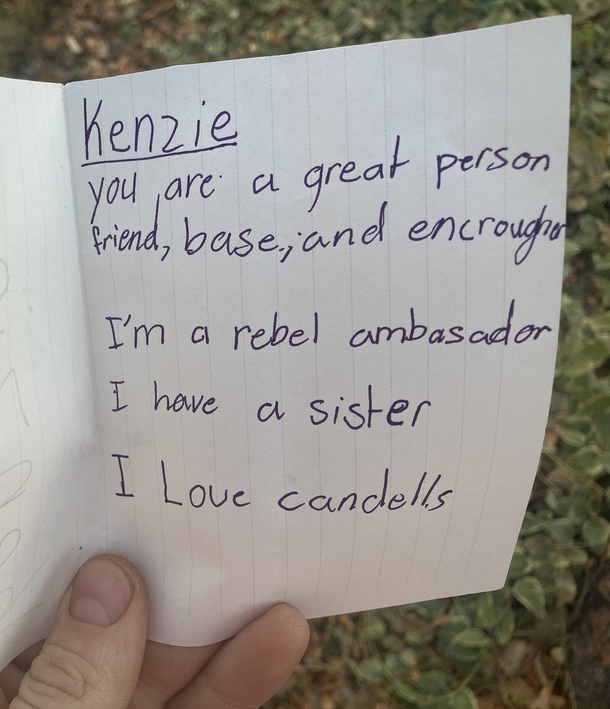 Kenzie
you are a great person
friend, base, and encrougher
I'm a rebel ambasador
I have a sister
I Love candells